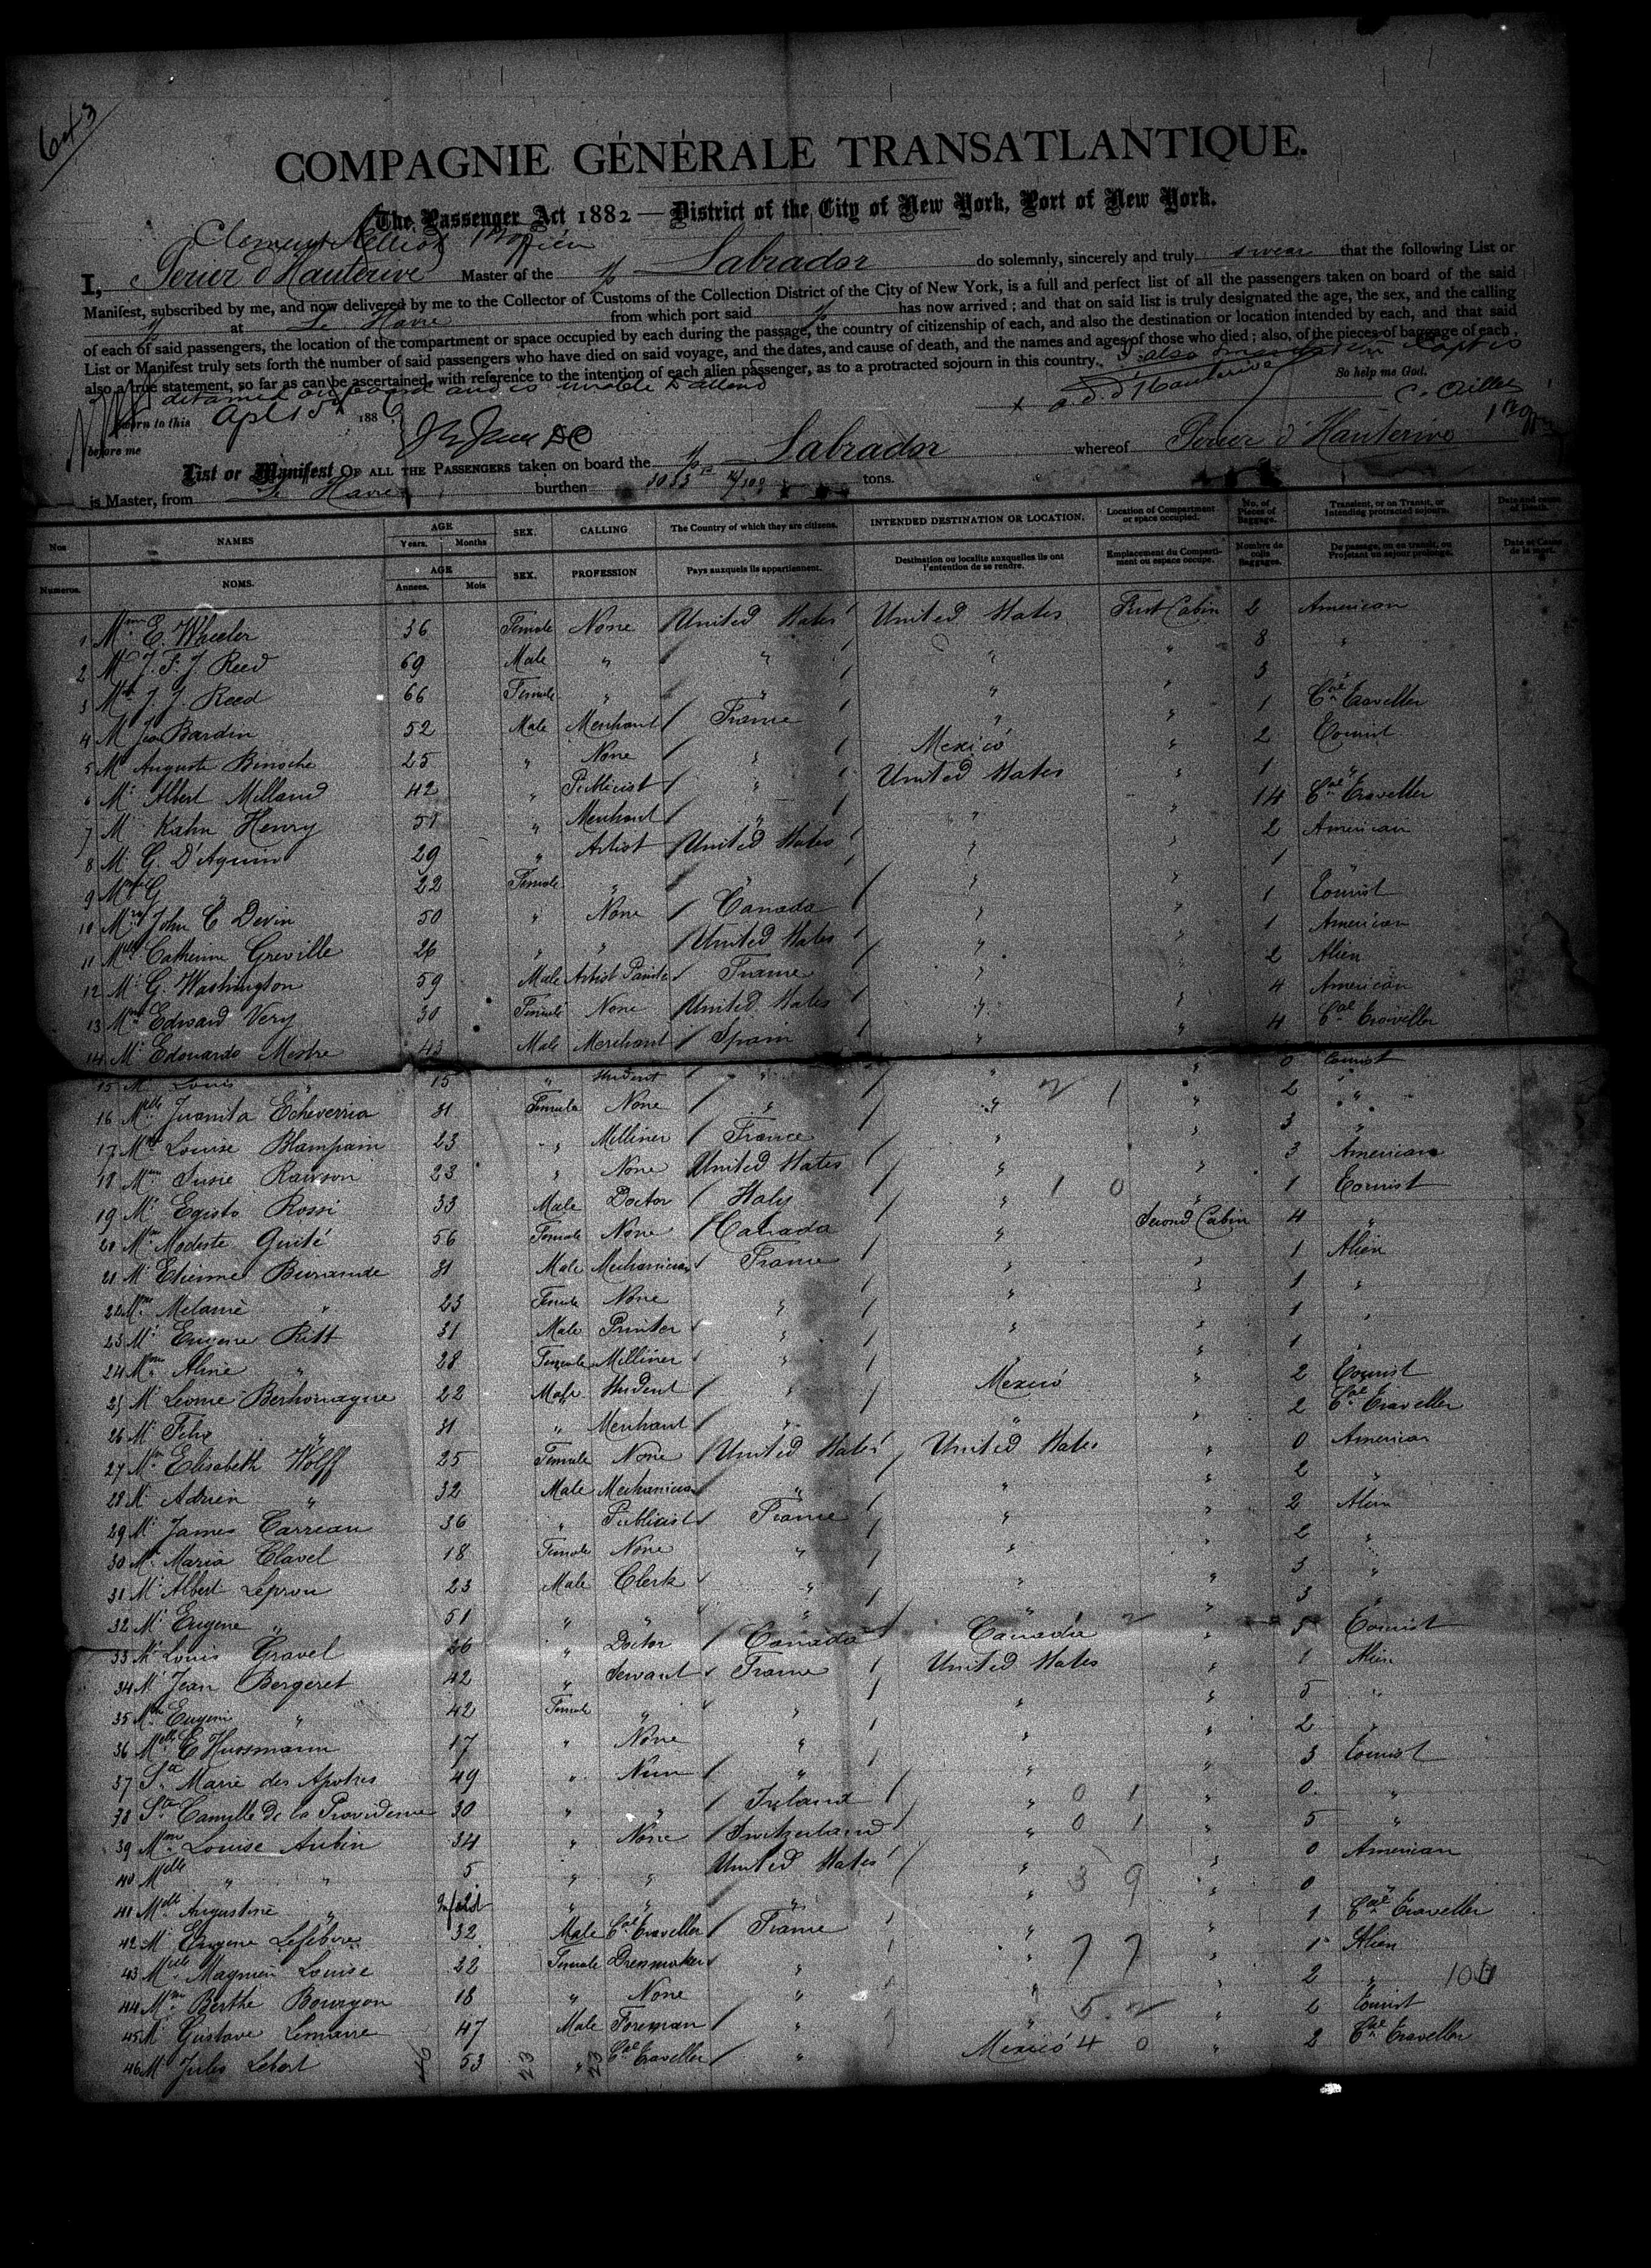 643
COMPAGNIE GÉNÉRALE TRANSATLANTIQUE.
The Passenger Act 1882 — District of the City of New York, Port of New York.
Clement
I, Perier d'Hauterive Master of the Labrador do solemnly, sincerely and truly swear that the following List or
Manifest, subscribed by me, and now delivered by me to the Collector of Customs of the Collection District of the City of New York, is a full and perfect list of all the passengers taken on board of the said
at Le Havre from which port said has now arrived; and that on said list is truly designated the age, the sex, and the calling
of each of said passengers, the location of the compartment or space occupied by each during the passage, the country of citizenship of each, and also the destination or location intended by each, and that said
List or Manifest truly sets forth the number of said passengers who have died on said voyage, and the dates, and cause of death, and the names and ages of those who died; also, of the pieces of baggage of each,
also a true statement, so far as can be ascertained, with reference to the intention of each alien passenger, as to a protracted sojourn in this country. I also
detained on board and is unable to attend So help me God.
Sworn to this Apl 15 1886 d'Hauterive
before me
List or Manifest OF ALL THE PASSENGERS taken on board the Labrador whereof Perier d'Hauterive
is Master, from Le Havre burthen tons.
Nos NAMES AGE Years. Months SEX. CALLING The Country of which they are citizens. INTENDED DESTINATION OR LOCATION. Location of Compartment or space occupied. No. of Pieces of Baggage. Transient, or on Transit, or Intending protracted sojourn. Date and cause of Death.
Numeros. NOMS. AGE Annees. Mois SEX. PROFESSION Pays auxquels ils appartiennent. Destination ou localite auxquelles ils ont l'entention de se rendre. Emplacement du Compartiment ou espace occupe. Nombre de colis Baggages. De passage, ou en transit, ou Projetant un sejour prolonge. Date et Cause de la mort.
1 Mme E. Wheeler 36 Female None United States United States First Cabin 2 American
2 Mr J. F. J. Reed 69 Male " " " " 8 "
3 J. J. Reed 66 Female " " " " 3
4 Mr Bardin 52 Male Merchant France " " 1 Cal Traveller
5 Mr Auguste Binoche 25 " None " Mexico " 2 Tourist
6 Mr Albert Millaud 42 " Publicist " United States " 1 "
7 Mr Kahn Henry 51 " Merchant " " " 14 Cal Traveller
8 Mr G. D'Aquin 29 " Artist United States " " 2 American
9 Mme G " 22 Female " " " " 1 "
10 Mrs John C Devin 50 " None Canada " " 1 Tourist
11 Melle Catherine Greville 26 " " United States " " 1 American
12 Mr G. Washington 59 Male Artist Painter France " " 2 Alien
13 Mme Edward Very 30 Female None United States " " 4 American
14 Mr Edouardo Mestre 43 Male Merchant Spain " " 4 Cal Traveller
15 Mr Louis " 15 " Student " " " 0 Tourist
16 Melle Juanita Echeverria 31 Female None " " " 2 "
17 Louise Blampain 23 " Milliner France " " 3 "
18 Mme Susie Rawson 23 " None United States " " 3 American
19 Mr Egisto Rossi 33 Male Doctor Italy " " 1 Tourist
20 Mme Modeste Guité 56 Female None Canada " Second Cabin 4 "
21 Mr Etienne 31 Male Mechanician France " " 1 Alien
22 Mme Melanie " 23 Female None " " " 1 "
23 Mr Eugene Ritt 31 Male Printer " " " 1 "
24 Mme Aline " 28 Female Milliner " " " 1 "
25 Mr Leonie 22 Male Student " Mexico " 2 Tourist
26 Mr Felix " 31 " Merchant " " " 2 Cal Traveller
27 Mme Elisabeth Wolff 25 Female None United States United States " 0 American
28 Mr Adrien " 32 Male Mechanician " " " 2 "
29 Mr James Carreau 36 " Publicist France " " 2 Alien
30 Maria Clavel 18 Female None " " " 2 "
31 Mr Albert Leprou 23 Male Clerk " " " 3 "
32 Mr Eugene " 51 " " " " " 3 "
33 Mr Louis Gravel 26 " Doctor Canada Canada " 5 Tourist
34 Mr Jean Bergeret 42 " Servant France United States " 1 Alien
35 Mme Eugenie " 42 Female " " " " 5 "
36 Melle E Hussmann 17 " None " " " 2 "
37 Marie des Apotres 49 " Nun " " " 3 Tourist
38 Camille de la Providence 30 " " Ireland " " 0 "
39 Mme Louise Aubin 34 " None Switzerland " " 5 "
40 Melle " " 5 " " United States " " 0 American
41 Melle Augustine " Infant " " " " " 0 "
42 Mr Eugene Lefebvre 32 Male Cal Traveller France " " 1 Cal Traveller
43 Melle Magnien Louise 22 Female Dressmaker " " " 1 Alien
44 Mme Berthe Bourgon 18 " None " " " 2 "
45 Mr Gustave Lemaire 47 Male Foreman " " " 2 Tourist
46 Mr Jules Lebert 53 " Cal Traveller " Mexico " 2 Cal Traveller